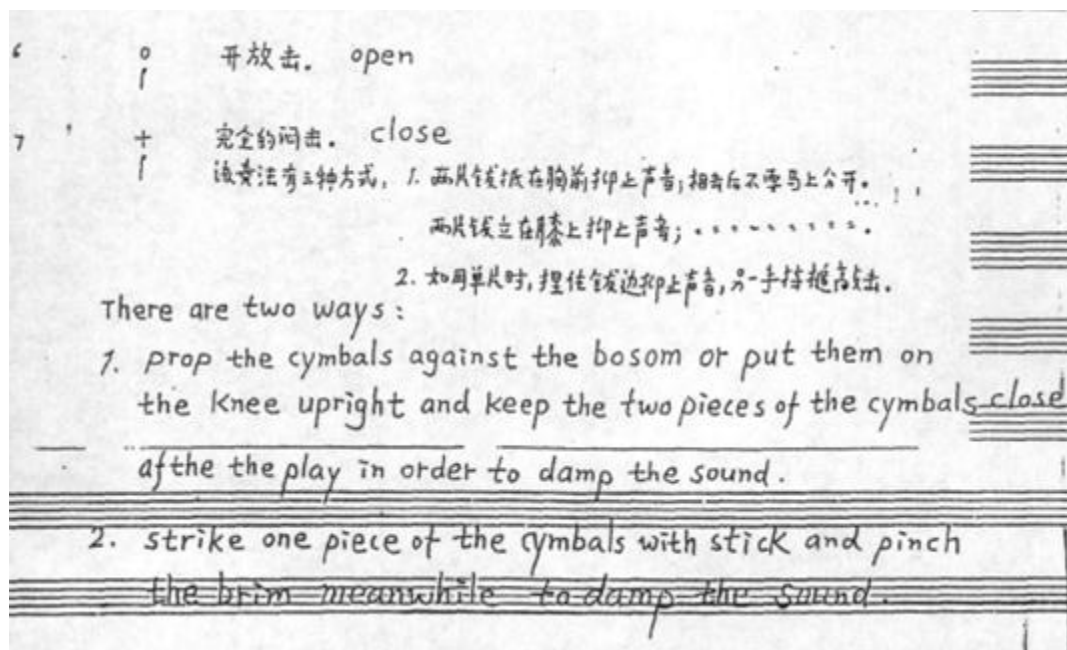 6 o 开放击. open
7 + 完全的闷击. close
该奏法有两种方式, 1. 两片钹抵在胸前抑止声音; 相击后不要马上分开.
两片钹立在膝上抑止声音; . . . . . . . . .
2. 如用单片时, 捏住钹边抑止声音, 另一手持槌敲击.
There are two ways:
1. prop the cymbals against the bosom or put them on
the Knee upright and keep the two pieces of the cymbals close
afthe the play in order to damp the sound.
2. strike one piece of the cymbals with stick and pinch
the brim meanwhile to damp the sound.